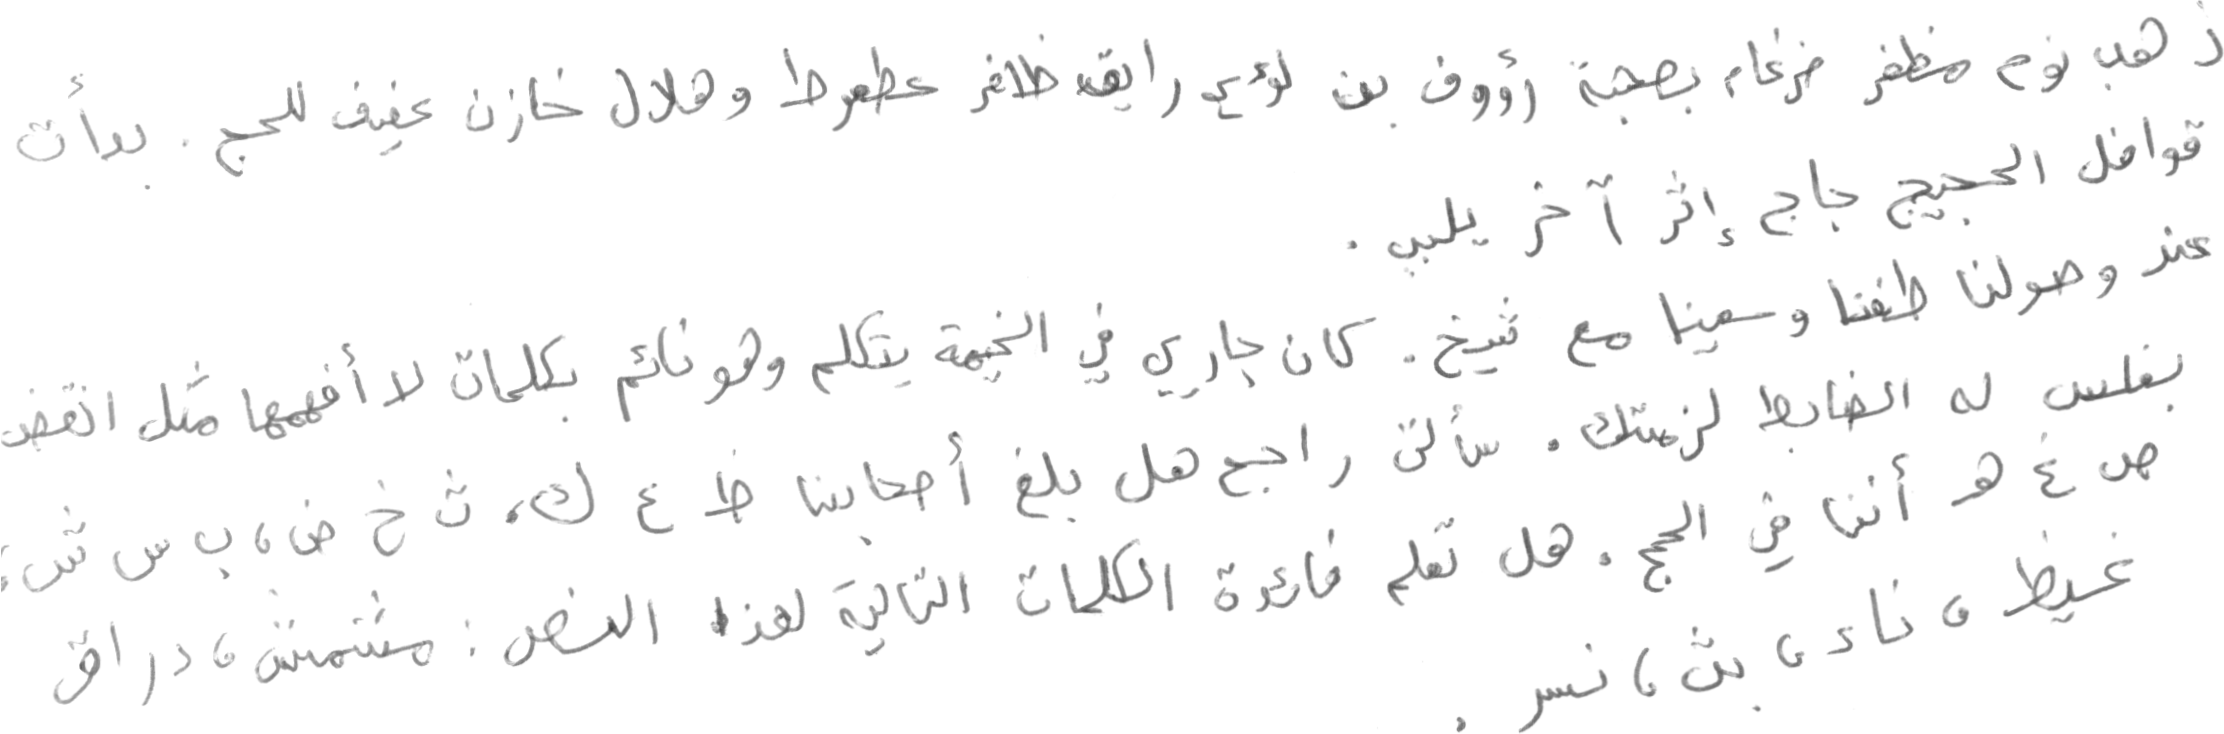 ذهب نوح مظفر ضرغام بصحبة رؤوف بن لؤي رايق ظافر عطعوط وهلال خازن عفيف للحج . بدأت
قوافل الحجيج حاج إثر آخر يلبي .
عند وصولنا طفنا وسعينا مع شيخ . كان جاري في الخيمة يتكلم وهو نائم بكلمات لا أفهمها مثل انقض
بغلس له الضابط لزمتك . سألت راجح هل بلغ أصحابنا ظ ع ك، ث خ ض ، ب س ش ،
ص غ ه أننا في الحج . هل تعلم فائدة الكلمات التالية لهذا النص : مشمش ، دراق
غيظ ، ناء ، بث ، نسر .